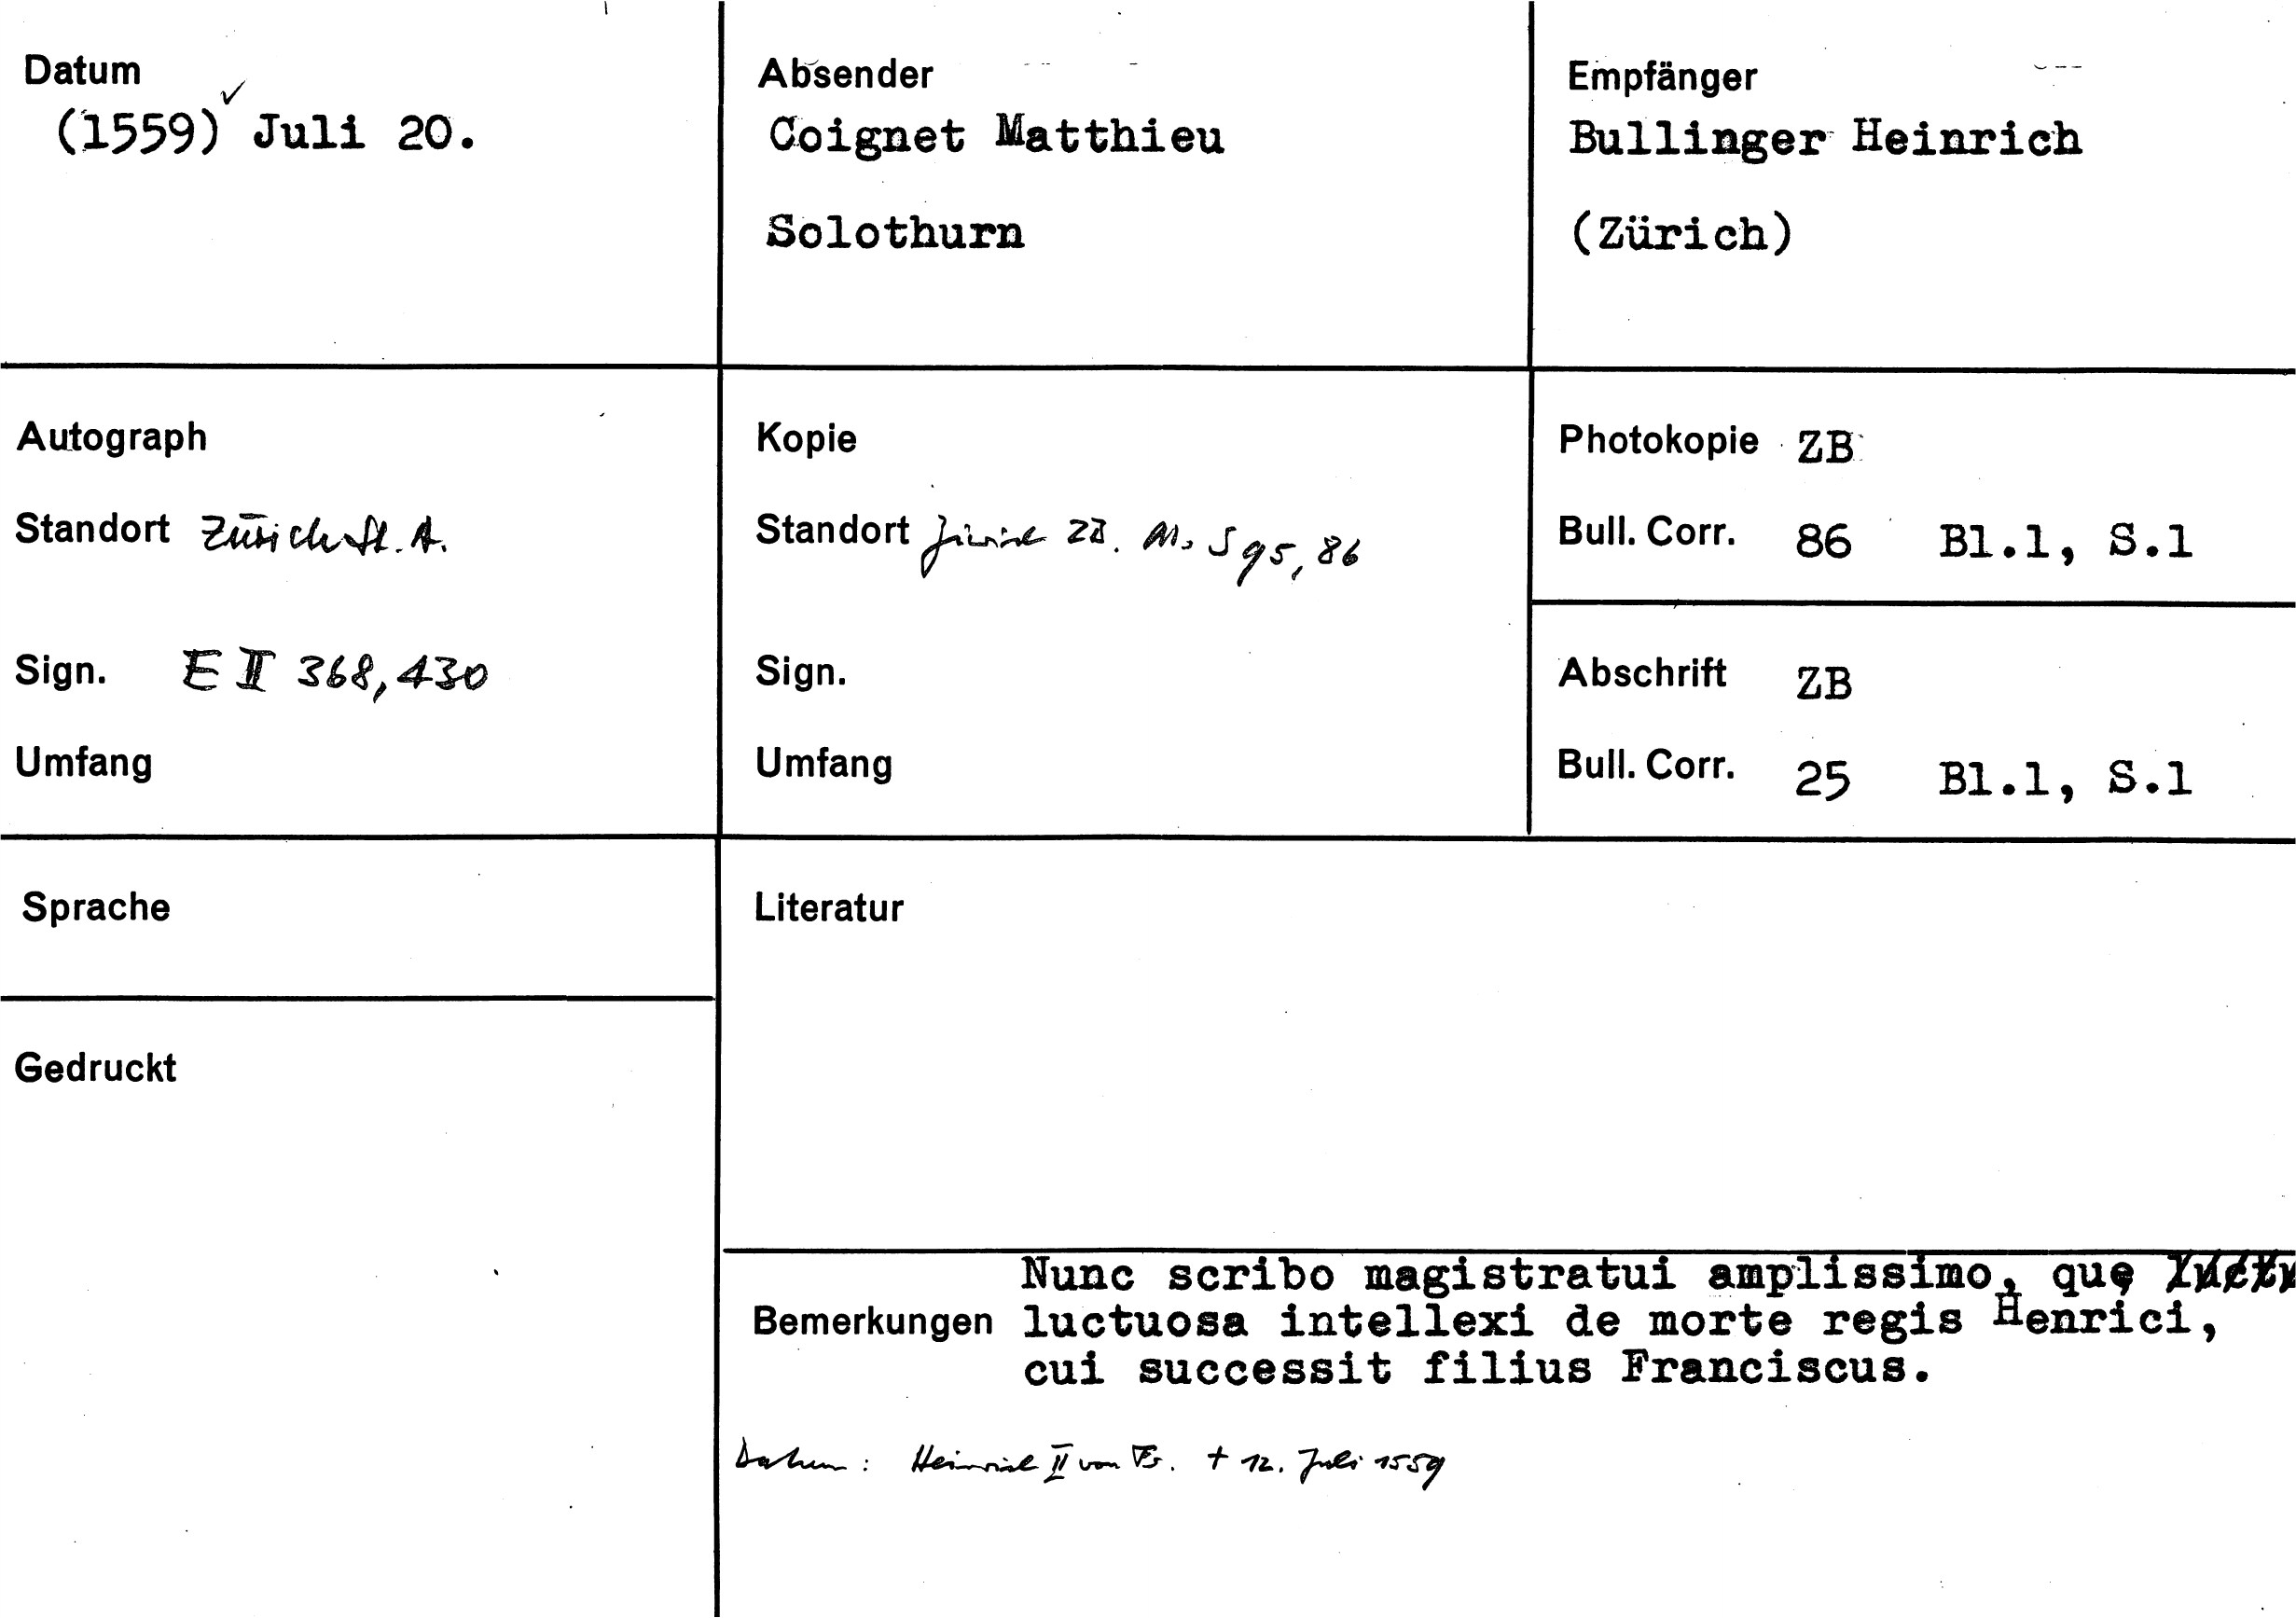 Datum
(1559) Juli 20.
Absender
Coignet Matthieu
Solothurn
Empfänger
Bullinger Heinrich
(Zürich)
Autograph
Standort Zürich St. A.
Sign. E II 368, 430
Umfang
Kopie
Standort Zürich ZB. Ms S 95, 86
Sign.
Umfang
Photokopie ZB
Bull. Corr. 86 Bl.1, S.1
Abschrift ZB
Bull. Corr. 25 Bl.1, S.1
Sprache
Gedruckt
Literatur
Bemerkungen
Nunc scribo magistratui amplissimo, quę
luctuosa intellexi de morte regis Henrici,
cui successit filius Franciscus.
Datum: Heinrich II von Fr. † 12. Juli 1559